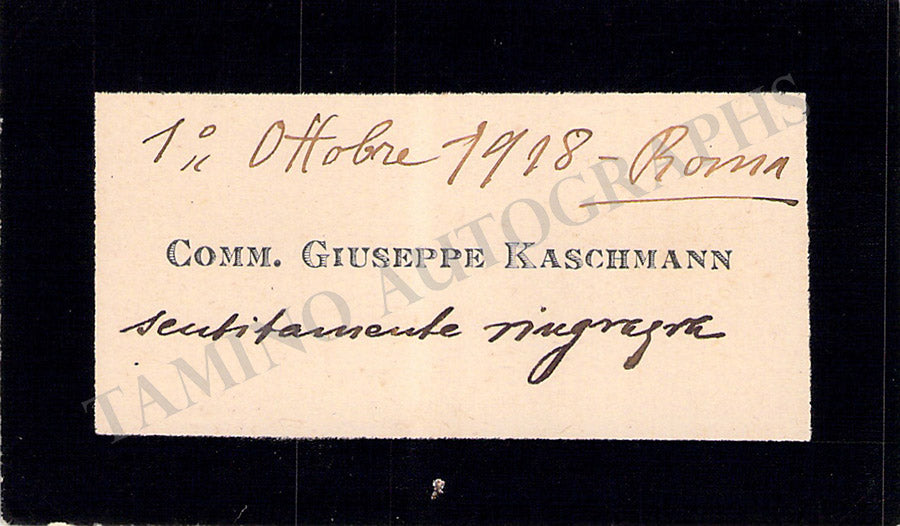 1º Ottobre 1918 - Roma
COMM. GIUSEPPE KASCHMANN
sentitamente ringrazia
TAMINO AUTOGRAPHS